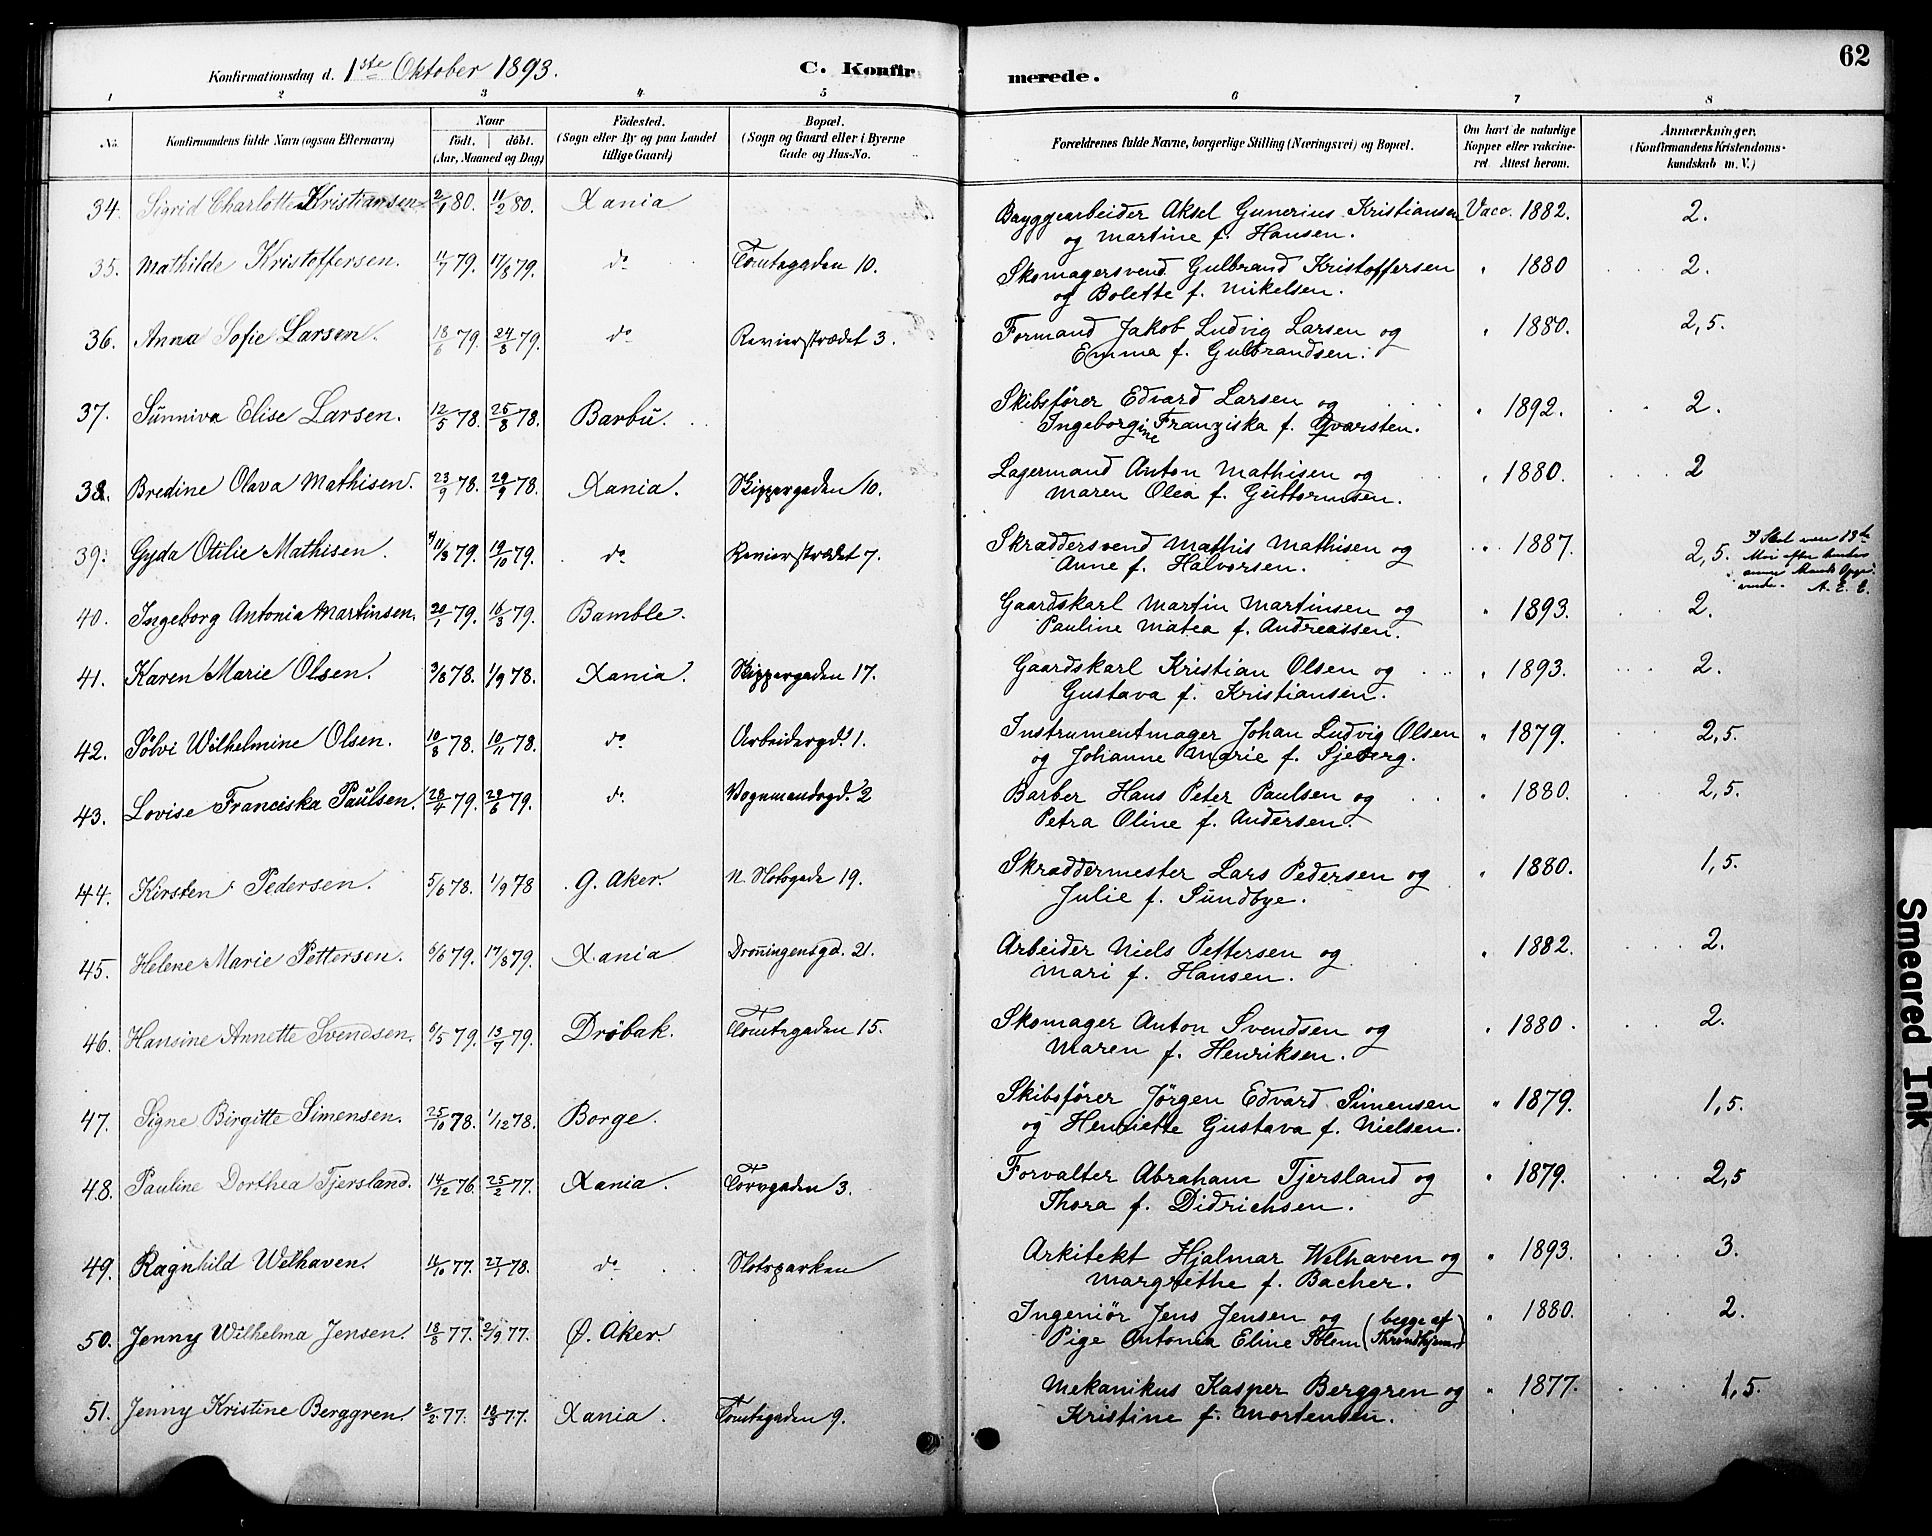 Konfirmationsdag d. 1ste Oktober 1893. C. Konfirmerede. 62
1 2 3 4 5 6 7 8
No. Konfirmandens fulde Navn (ogsaa Efternavn) Naar født. døbt. (Aar, Maaned og Dag) Fødested. (Sogn eller By og paa Landet tillige Gaard) Bopæl. (Sogn og Gaard eller i Byerne Gade og Hus-No. Forældrenes fulde Navne, borgerlige Stilling (Næringsvei) og Bopæl. Om havt de naturlige Kopper eller vakcineret. Attest herom. Anmærkninger. (Konfirmandens Kristendomskundskab m. V.)
34. Sigrid Charlotte Kristiansen 2/1 80. 11/2 80. Xania Byggearbeider Aksel Gunerius Kristiansen Vacc. 1882. 2.
og Martine f. Hansen.
35. Mathilde Kristoffersen. 11/7 79. 17/8 79. do Tomtegaden 10. Skomagersvend Gulbrand Kristoffersen " 1880 2.
og Bolette f. Mikelsen.
36. Anna Sofie Larsen. 18/6 79. 24/8 79. do Revierstrædet 3. Formand Jakob Ludvig Larsen og " 1880. 2,5.
Emma f. Gulbrandsen.
37. Sunniva Elise Larsen. 12/5 78. 25/8 78. Barbu. Skibsfører Edvard Larsen og " 1892. 2.
Ingeborgine Franziska f. Qvarsten.
38. Bredine Olava Mathisen. 23/9 78. 29/9 78. Xania. Skippergaden 10. Lagermand Anton Mathisen og " 1880. 2
Maren Olea f. Guttormsen.
39. Gyda Otilie Mathisen. 11/8 79. 19/10 79. do Revierstrædet 7. Skræddersvend Mathis Mathisen og " 1887. 2,5.
Anne f. Halvorsen.
40. Ingeborg Antonia Martinsen. 20/1 79. 16/3 79. Bamble. Gaardskarl Martin Martinsen og " 1893. 2.
Pauline Matea f. Andreassen.
41. Karen Marie Olsen. 3/8 78. 1/9 78. Xania. Skippergaden 17. Gaardskarl Kristian Olsen og " 1893. 2.
Gustava f. Kristiansen.
42. Sølvi Wilhelmine Olsen. 10/8 78. 10/11 78. do Arbeidergd. 1. Instrumentmager Johan Ludvig Olsen " 1879. 2,5.
og Johanne Marie f. Sjeberg.
43. Lovise Franciska Paulsen. 28/4 79. 29/6 79. do Vognmandsgd. 2 Barber Hans Peter Paulsen og " 1880. 2,5.
Petra Oline f. Andersen.
44. Kirsten Pedersen. 5/6 78. 1/9 78 G. Aker. N. Slotsgade 19. Skræddermester Lars Pedersen og " 1880. 1,5.
Julie f. Sundbye.
45. Helene Marie Pettersen. 6/6 79. 17/8 79. Xania Dronningensgd. 21. Arbeider Niels Pettersen og " 1882. 2.
Mari f. Hansen.
46. Hansine Annette Svendsen. 6/5 79. 13/7 79. Drøbak. Tomtegaden 15. Skomager Anton Svendsen og " 1880. 2.
Maren f. Henriksen.
47. Signe Birgitte Simensen. 25/10 78. 1/12 78. Borge. Skibsfører Jørgen Edvard Simensen " 1879. 1,5.
og Henriette Gustava f. Nielsen.
48. Pauline Dorthea Tjersland. 14/12 76. 25/2 77. Xania. Torvgaden 3. Forvalter Abraham Tjersland og " 1879. 2,5
Thora f. Didrichsen.
49. Ragnhild Welhaven. 16/10 77. 27/1 78. do Slotsparken Arkitekt Hjalmar Welhaven og " 1893. 3.
Margrethe f. Backer.
50. Jenny Wilhelma Jensen. 18/8 77. 2/9 77. Ø. Aker. Ingeniør Jens Jensen og (begge af " 1880. 2.
Pige Antonia Eline Solem Throndhjem)
51. Jenny Kristine Berggren. 2/2 77. 18/3 77. Xania. Tomtegaden 9. Mekanikus Kasper Berggren og " 1877. 1,5.
Kristine f. Mortensen.
Smeared Ink